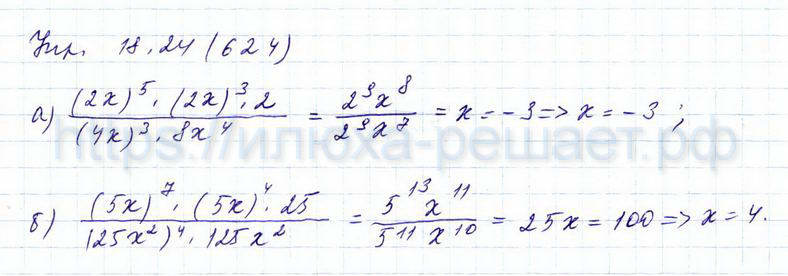 Упр. 18.24 (624)
а) (2x)⁵ · (2x)³ · 2 / (4x)³ · 8x⁴ = 2⁹x⁸ / 2⁹x⁷ = x = -3 => x = -3 ;
https://илюха-решает.рф
б) (5x)⁷ · (5x)⁴ · 25 / (25x²)⁴ · 125x² = 5¹³x¹¹ / 5¹¹x¹⁰ = 25x = 100 => x = 4.